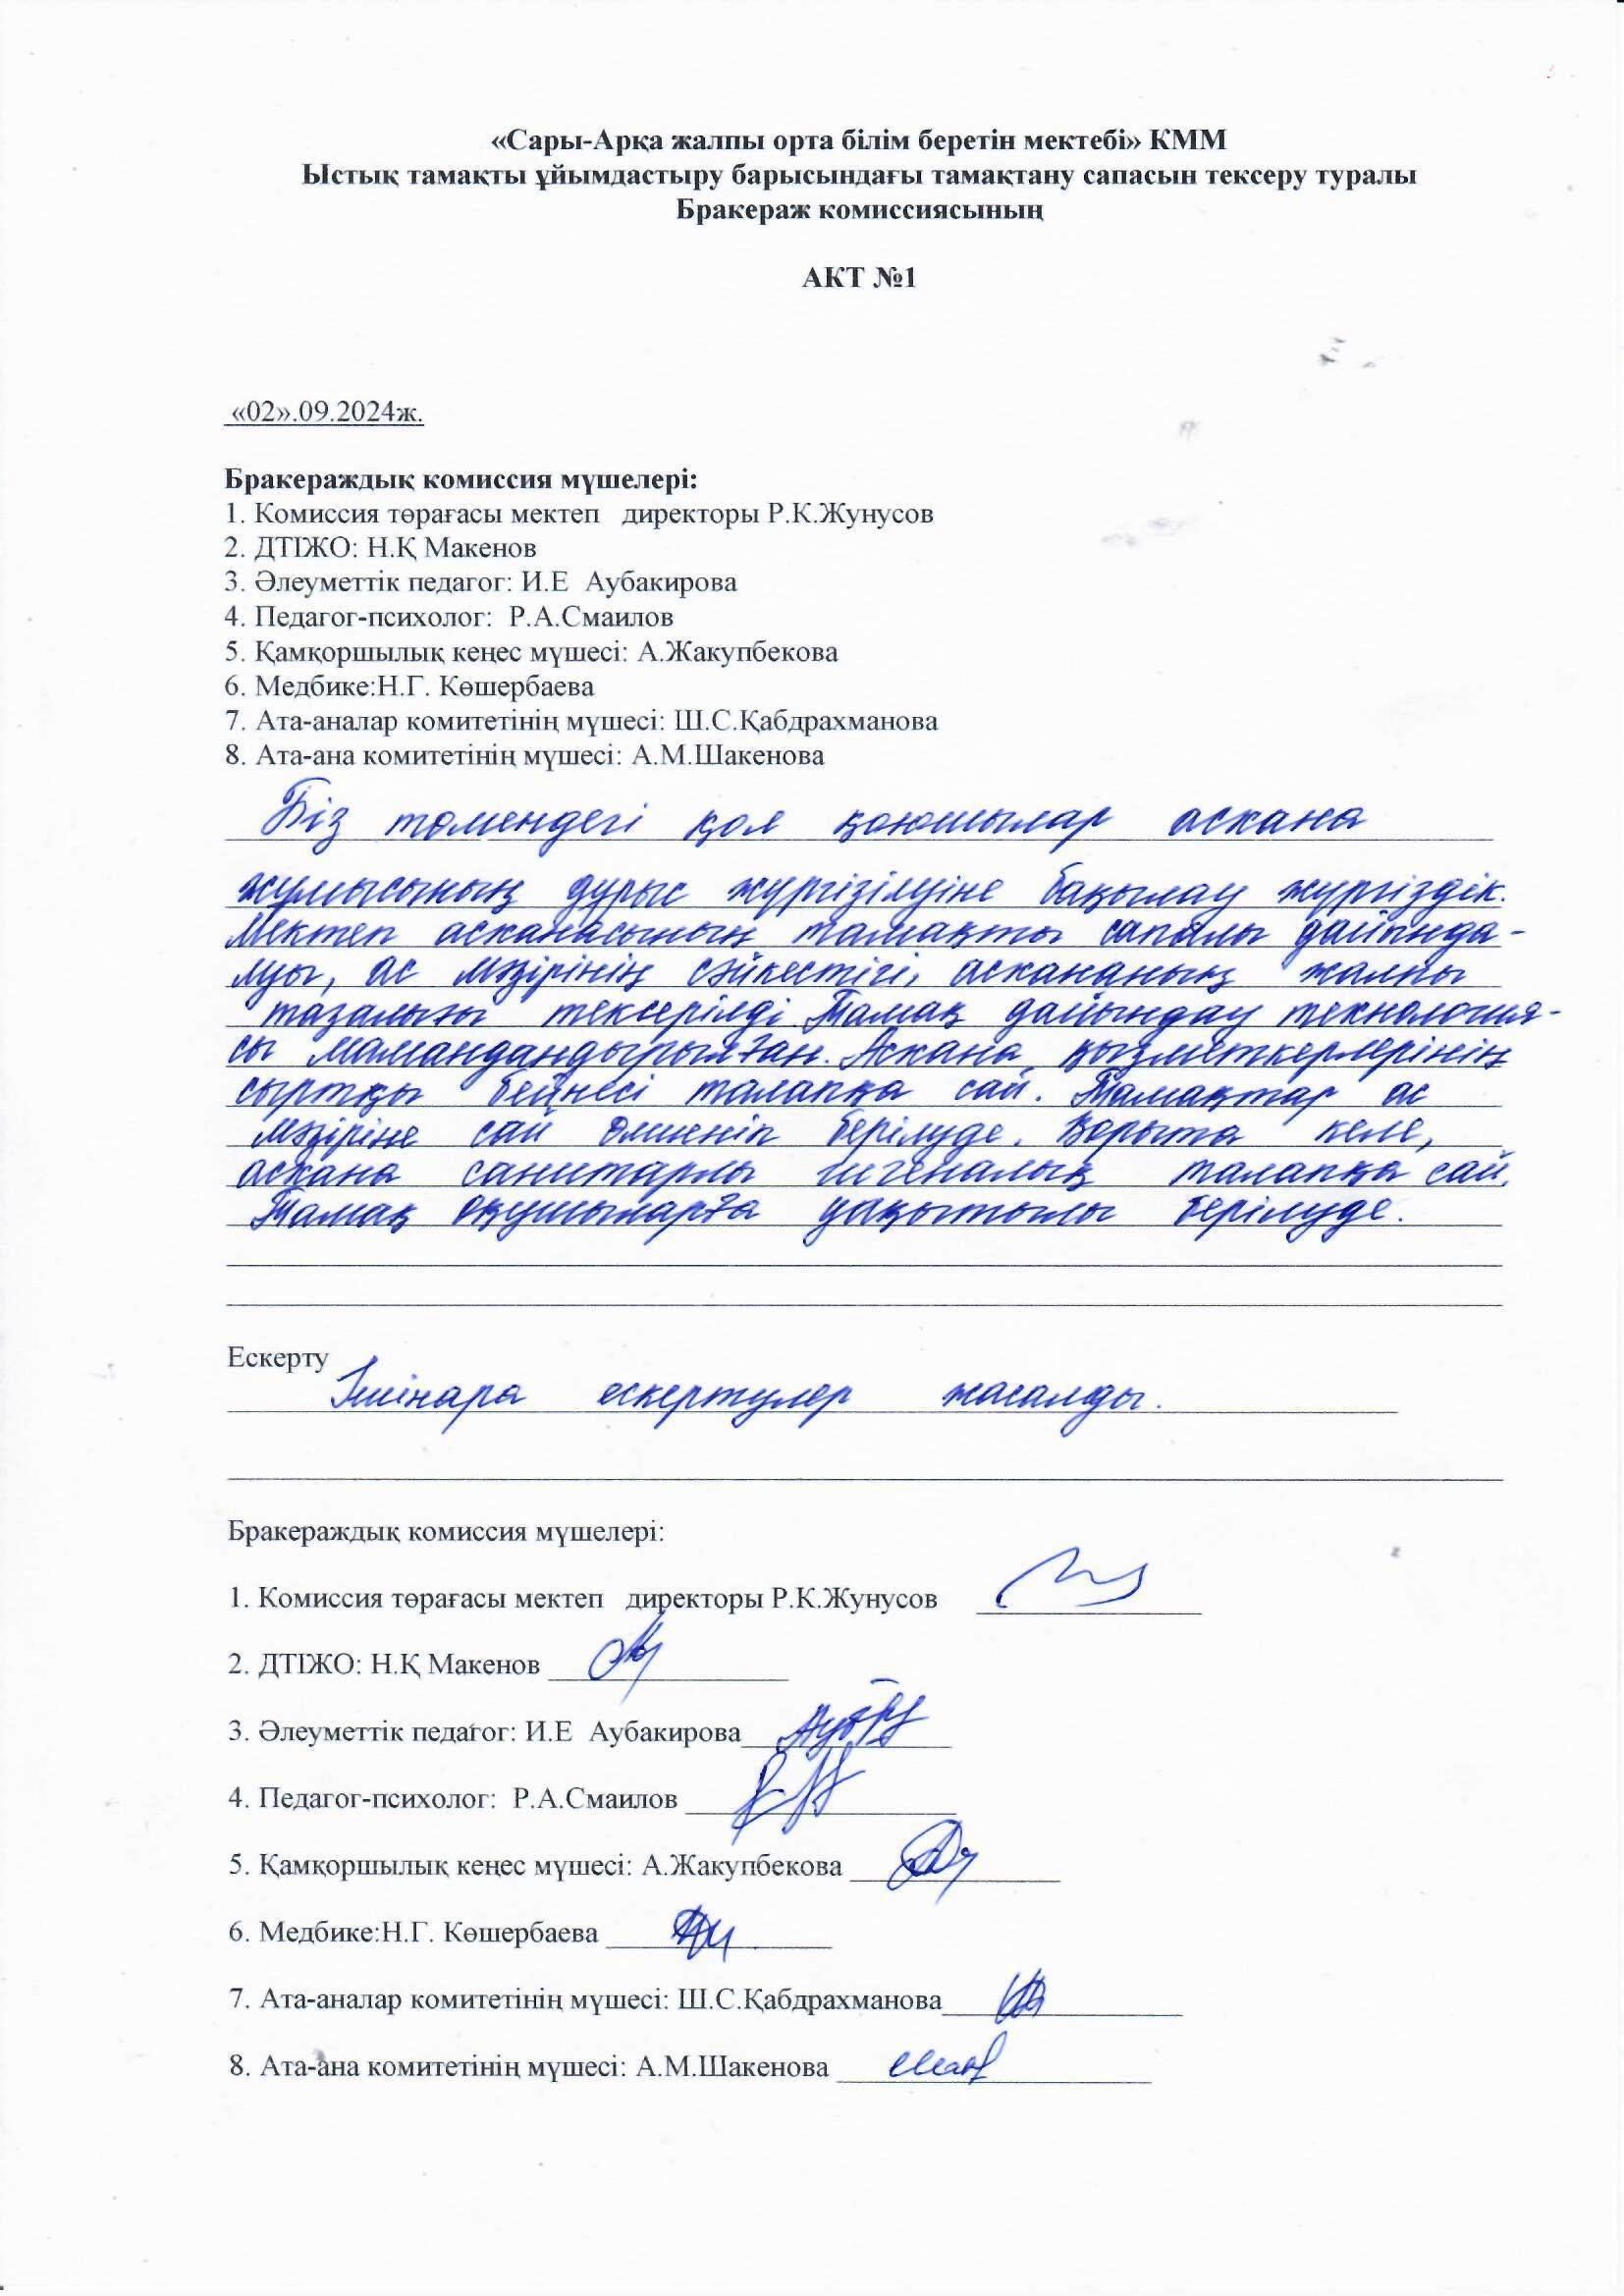 «Сары-Арқа жалпы орта білім беретін мектебі» КММ
Ыстық тамақты ұйымдастыру барысындағы тамақтану сапасын тексеру туралы
Бракераж комиссиясының
АКТ №1
«02».09.2024ж.
Бракераждық комиссия мүшелері:
1. Комиссия төрағасы мектеп директоры Р.К.Жунусов
2. ДТІЖО: Н.Қ Макенов
3. Әлеуметтік педагог: И.Е Аубакирова
4. Педагог-психолог: Р.А.Смаилов
5. Қамқоршылық кеңес мүшесі: А.Жакупбекова
6. Медбике:Н.Г. Көшербаева
7. Ата-аналар комитетінің мүшесі: Ш.С.Қабдрахманова
8. Ата-ана комитетінің мүшесі: А.М.Шакенова
Біз төмендегі қол қоюшылар асхана
жұмысының дұрыс жүргізілуіне бақылау жүргіздік.
Мектеп асханасының тамақты сапалы дайында-
луы, ас мәзірінің сәйкестігі, асхананың жалпы
тазалығы тексерілді. Тамақ дайындау технология-
сы мамандандырылған. Асхана қызметкерлерінің
сыртқы бейнесі талапқа сай. Тамақтар ас
мәзіріне сай өлшеніп берілуде. Қорыта келе,
асхана санитарлы гигеналық талапқа сай.
Тамақ оқушыларға уақытылы берілуде.
Ескерту
Ішінара ескертулер жасалды.
Бракераждық комиссия мүшелері:
1. Комиссия төрағасы мектеп директоры Р.К.Жунусов
2. ДТІЖО: Н.Қ Макенов
3. Әлеуметтік педагог: И.Е Аубакирова
4. Педагог-психолог: Р.А.Смаилов
5. Қамқоршылық кеңес мүшесі: А.Жакупбекова
6. Медбике:Н.Г. Көшербаева
7. Ата-аналар комитетінің мүшесі: Ш.С.Қабдрахманова
8. Ата-ана комитетінің мүшесі: А.М.Шакенова